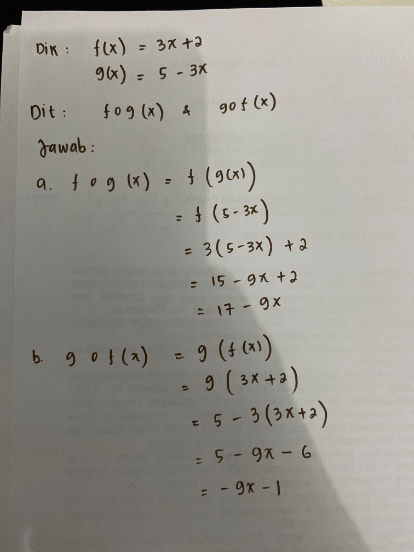 Dik : f(x) = 3x + 2
g(x) = 5 - 3x
Dit : fog(x) & gof(x)
Jawab :
a. fog(x) = f(g(x))
= f(5-3x)
= 3(5-3x) + 2
= 15 - 9x + 2
= 17 - 9x
b. gof(x) = g(f(x))
= g(3x+2)
= 5 - 3(3x+2)
= 5 - 9x - 6
= - 9x - 1